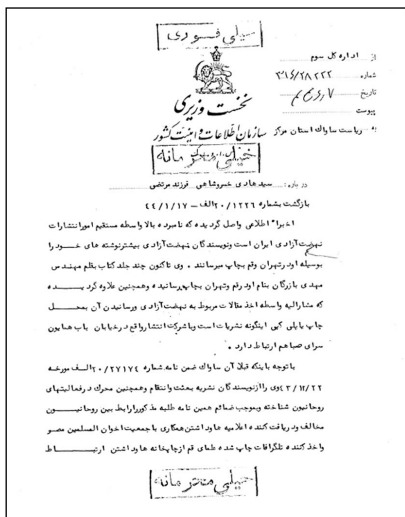 خیلی فوری
از اداره کل سوم
شماره ۳۱۶/۲۸۲۲۲
تاریخ
پیوست
نخست وزیری
سازمان اطلاعات و امنیت کشور
به ریاست ساواک استان مرکز
خیلی محرمانه
درباره: سید هادی خسروشاهی فرزند مرتضی
بازگشت بشماره ۲۰/۱۲۲۶الف - ۴۴/۱/۱۷
اخیرا" اطلاعی واصل گردیده که نامبرده بالا واسطه مستقیم امور انتشارات
نهضت آزادی ایران است و نویسندگان نهضت آزادی بیشتر نوشته های خود را
بوسیله او در تهران و قم بچاپ میرسانند . وی تاکنون چند جلد کتاب بقلم مهندس
مهدی بازرگان بنام او در قم و تهران بچاپ رسانیده و همچنین علاوه گردیده
که مشارالیه واسطه اخذ مقالات مربوط به نهضت آزادی و رسانیدن آن بمحل
چاپ یا پلی کپی اینگونه نشریات است و با شرکت انتشار واقع در خیابان باب همایون
سرای صباهم ارتباط دارد .
با توجه باینکه قبلا آن ساواک ضمن نامه شماره ۲۰/۲۷۱۷۴ الف مورخه
۴۳/۱۲/۲۲ وی را از نویسندگان نشریه بعثت و انتقام و همچنین محرک در فعالیتهای
روحانیون شناخته و بموجب ضمائم همین نامه طلبه مذکور رابط بین روحانیون
مخالف و دریافت کننده اعلامیه ها و داشتن همکاری با جمعیت اخوان المسلمین مصر
و اخذ کننده تلگرافات چاپ شده علمای قم از چاپخانه ها و داشتن ارتباط
خیلی محرمانه